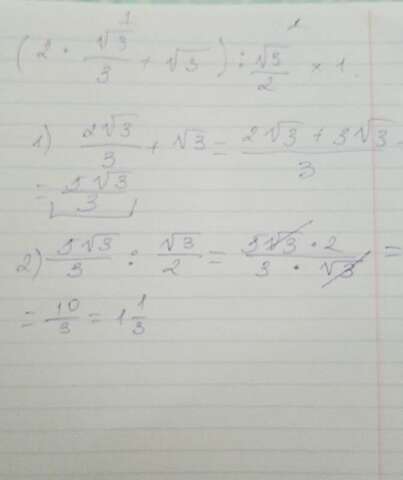 (2 · √3/3 + √3) : √3/2 × 1
1) 2√3/3 + √3 = 2√3 + 3√3/3
= 5√3/3
2) 5√3/3 : √3/2 = 5√3 · 2/3 · √3 =
= 10/3 = 1 1/3